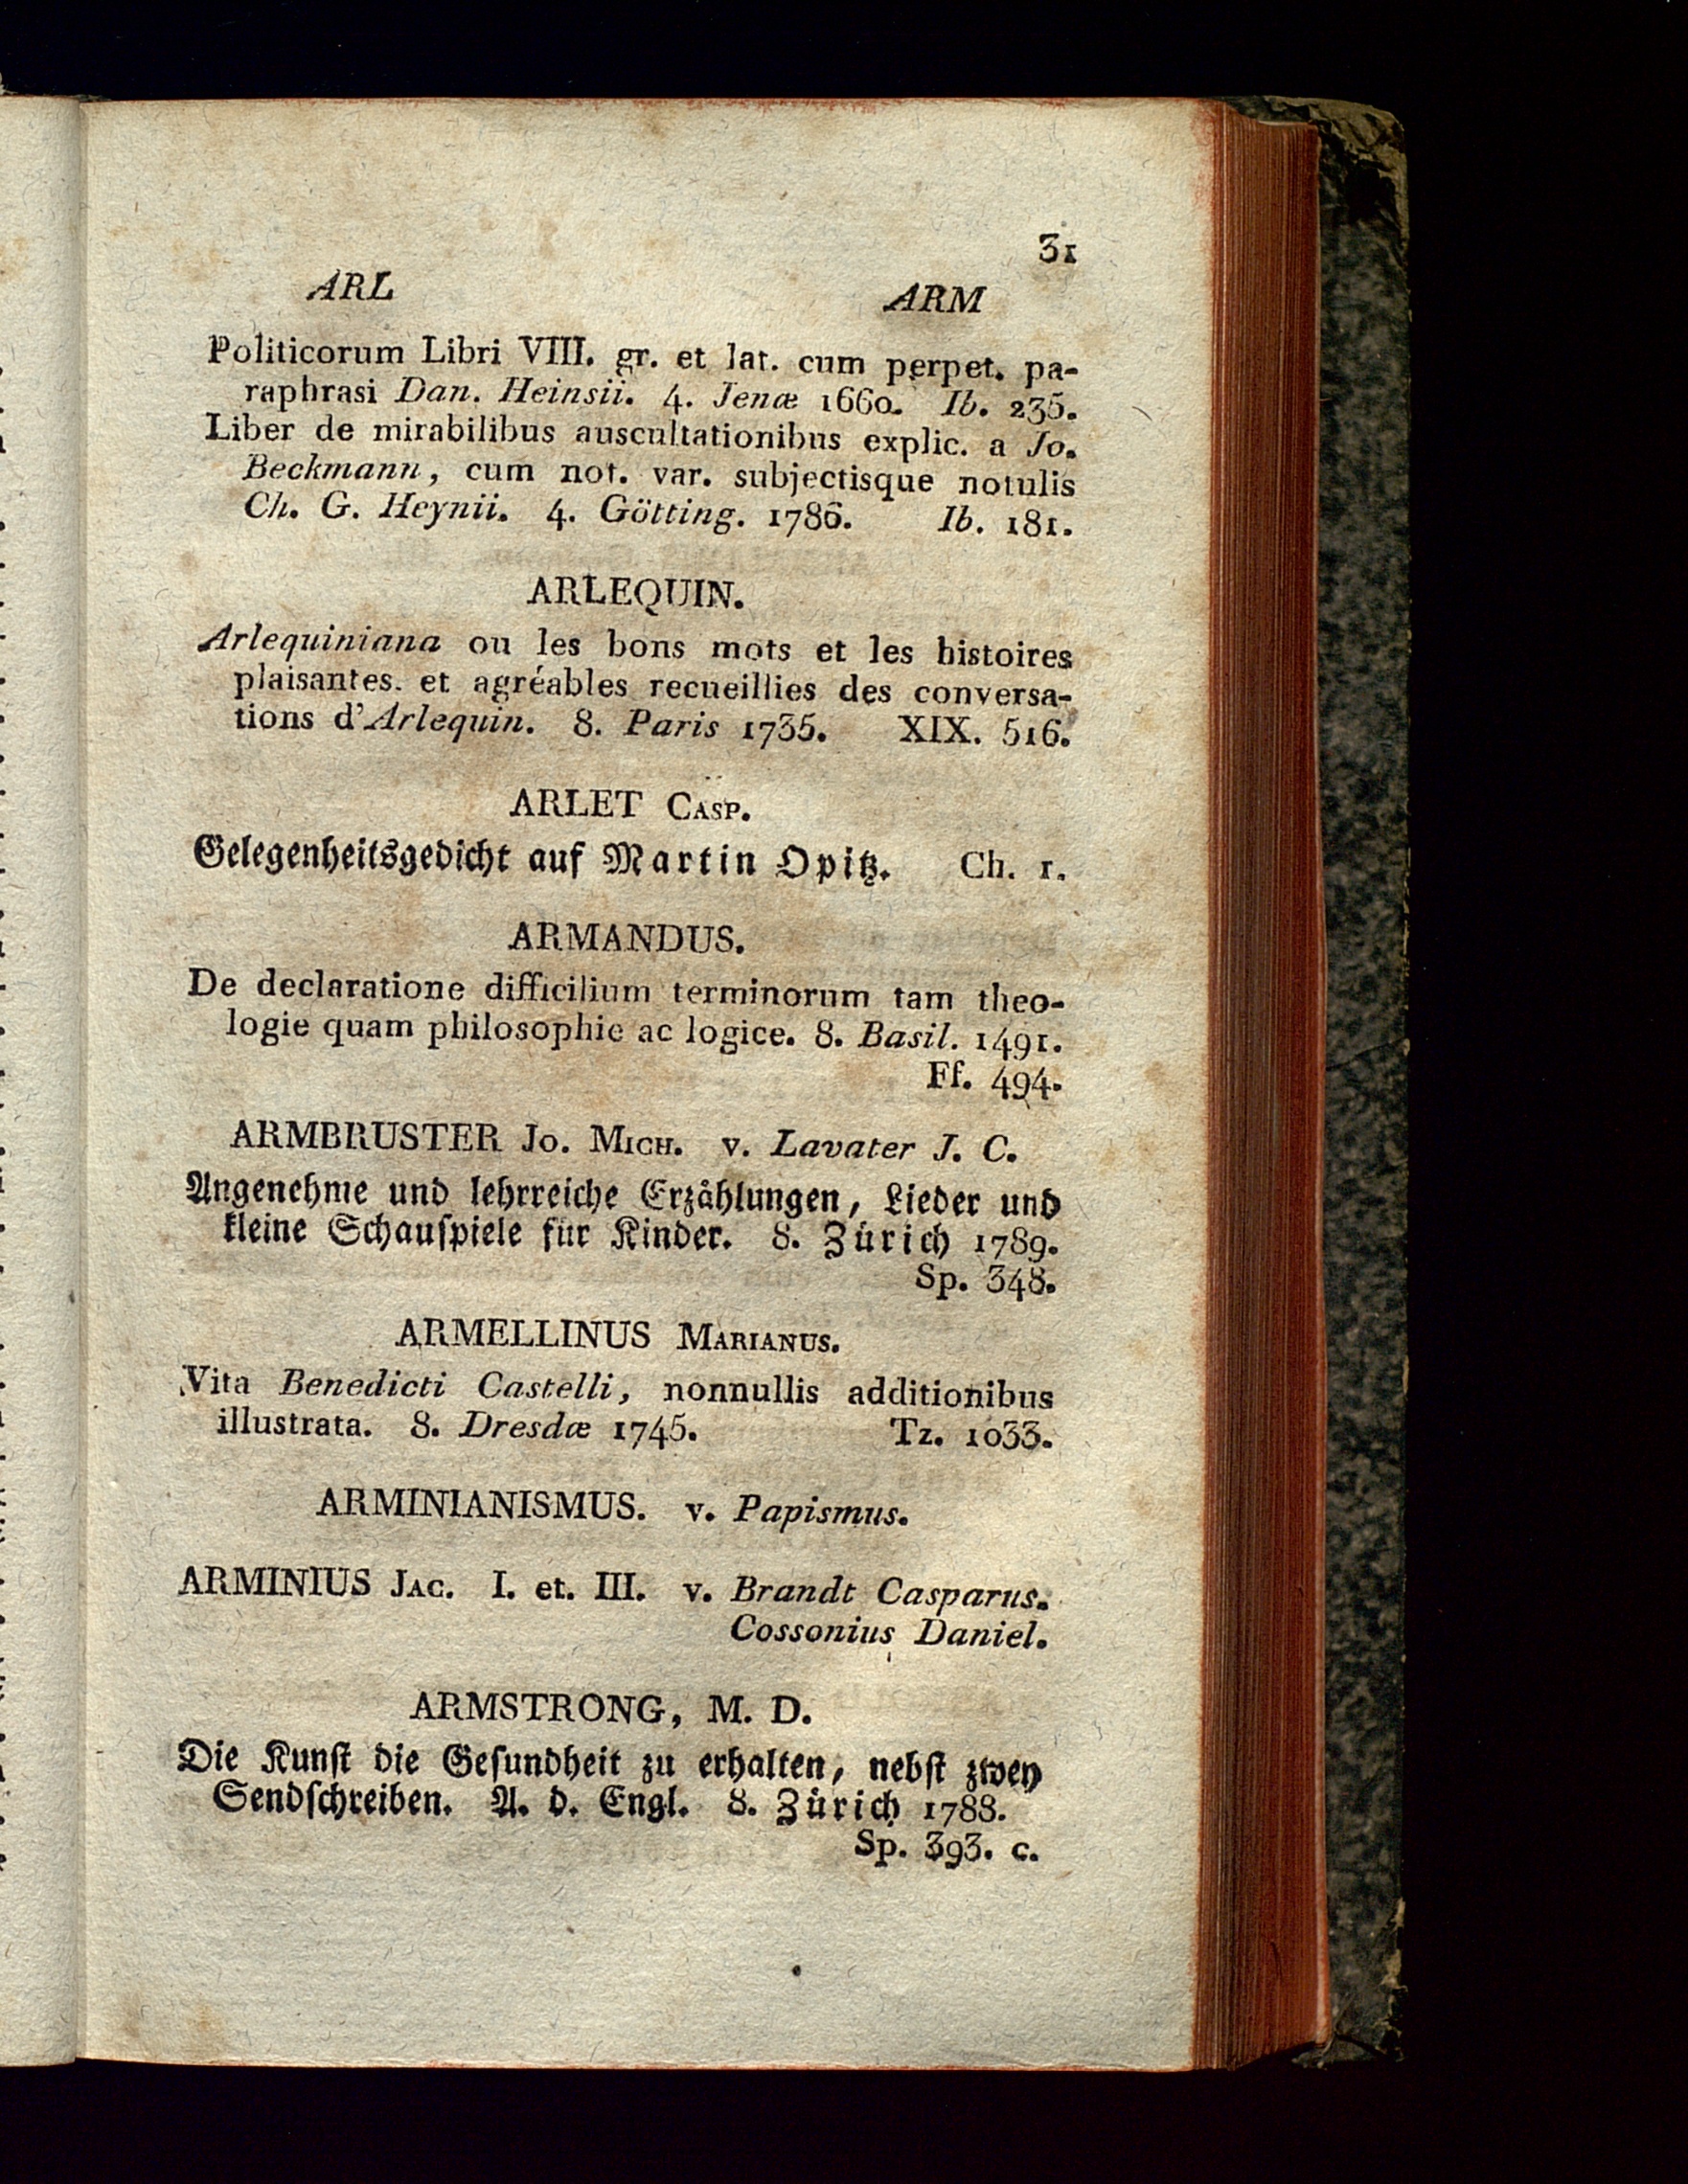 31
ARL ARM
Politicorum Libri VIII. gr. et lat. cum perpet. pa-
raphrasi Dan. Heinsii. 4. Jenæ 1660. Ib. 235.
Liber de mirabilibus auscultationibus explic. a Jo.
Beckmann, cum not. var. subjectisque notulis
Ch. G. Heynii. 4. Götting. 1786. Ib. 181.
ARLEQUIN.
Arlequiniana ou les bons mots et les histoires
plaisantes. et agréables recueillies des conversa-
tions d'Arlequin. 8. Paris 1735. XIX. 516.
ARLET CASP.
Gelegenheitsgedicht auf Martin Opitz. Ch. 1.
ARMANDUS.
De declaratione difficilium terminorum tam theo-
logie quam philosophie ac logice. 8. Basil. 1491.
Ff. 494.
ARMBRUSTER JO. MICH. v. Lavater J. C.
Angenehme und lehrreiche Erzählungen, Lieder und
kleine Schauspiele für Kinder. 8. Zürich 1789.
Sp. 348.
ARMELLINUS MARIANUS.
Vita Benedicti Castelli, nonnullis additionibus
illustrata. 8. Dresdæ 1745. Tz. 1033.
ARMINIANISMUS. v. Papismus.
ARMINIUS JAC. I. et. III. v. Brandt Casparus.
Cossonius Daniel.
ARMSTRONG, M. D.
Die Kunst die Gesundheit zu erhalten, nebst zwey
Sendschreiben. A. d. Engl. 8. Zürich 1788.
Sp. 393. c.